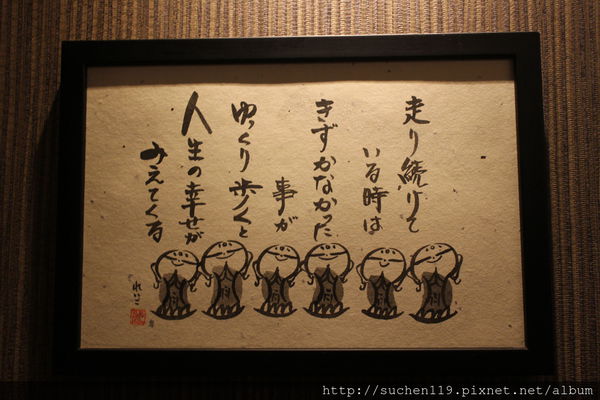 走り続けて
いる時は
きずかなかった
事が
ゆっくり歩くと
人生の幸せが
みえてくる
れいこ
http://suchen119.pixnet.net/album